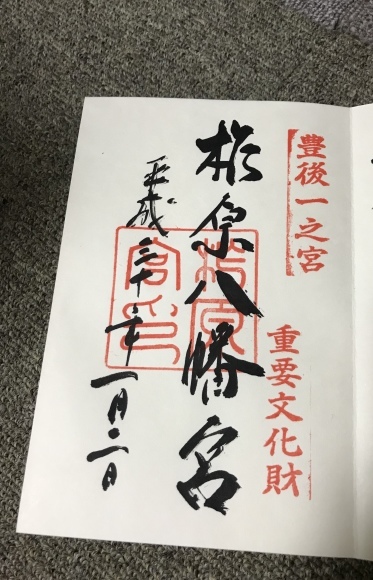 豊後一之宮
重要文化財
柞原八幡宮
柞原
宮印
平成三十年一月二日